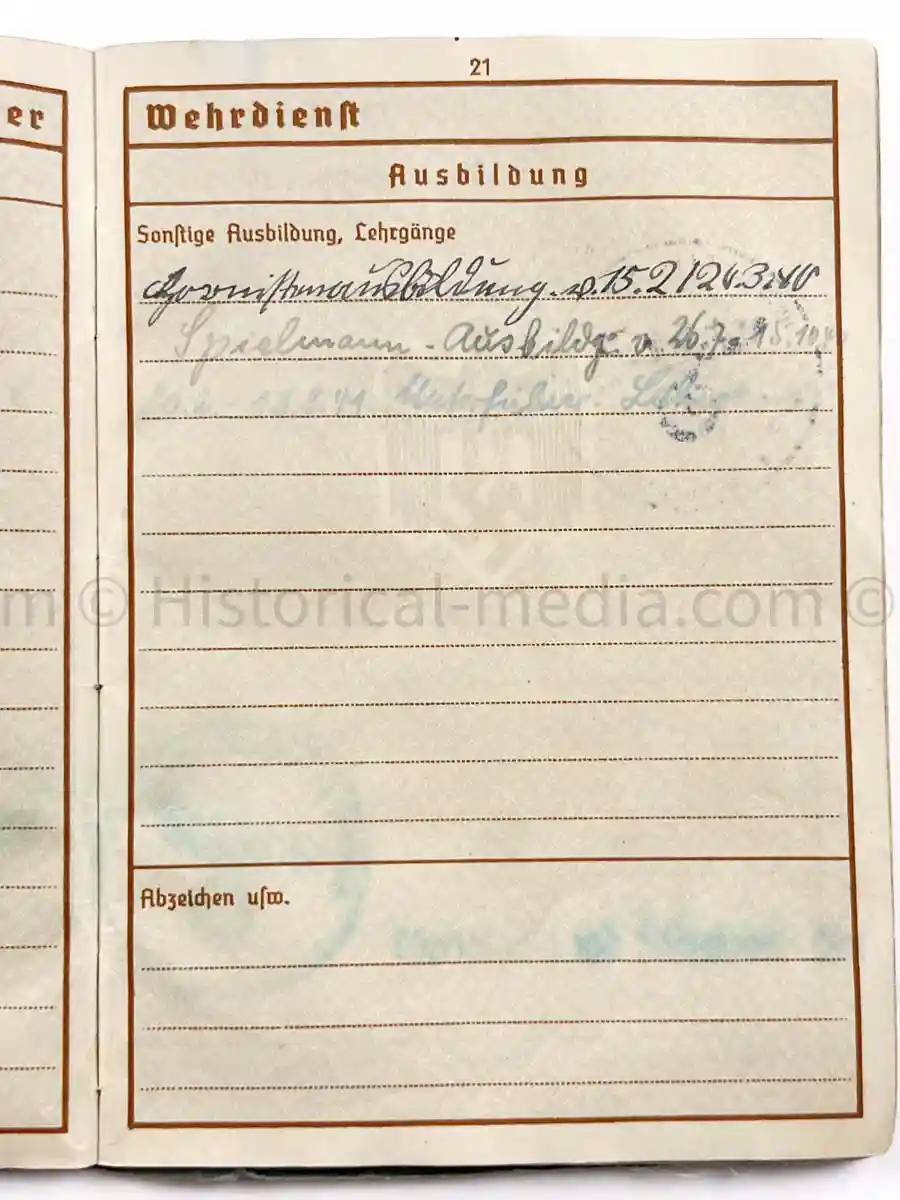 21
er
Wehrdienst
Ausbildung
Sonstige Ausbildung, Lehrgänge
Hornistenausbildung. v. 15.2/20.3.40
Spielmann - Ausbildg. v. 26.7.
Unterführer
m © Historical-media.com ©
Abzeichen usw.